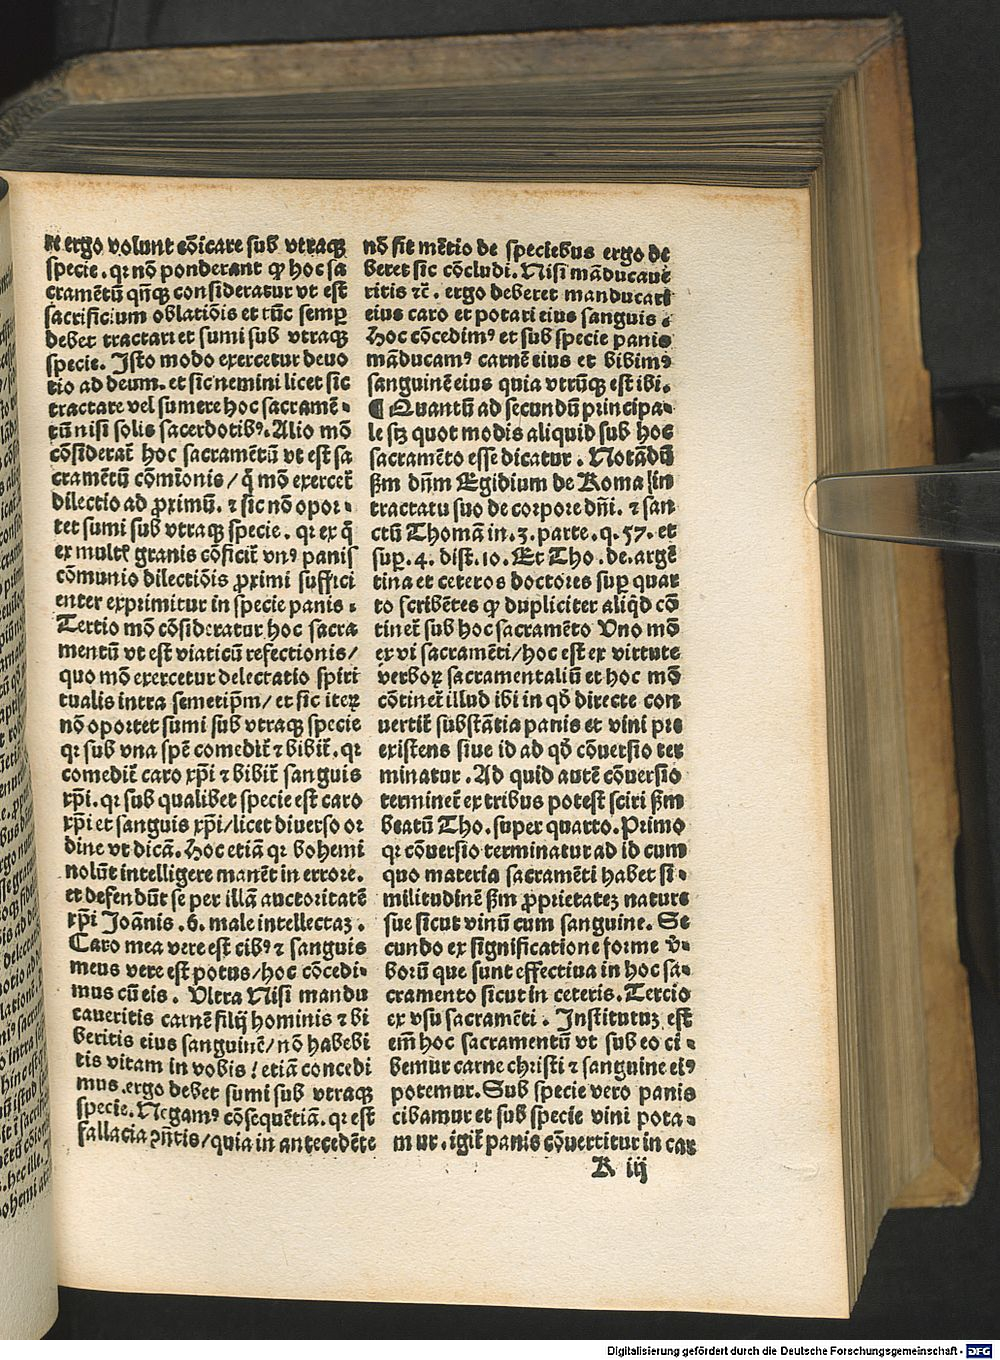 ergo volunt cōicare sub vtraqꝫ
specie. qꝛ nō ponderant ꝙ hoc sa
cramētū qn̄qꝫ consideratur vt est
sacrificium oblatiōis et tūc semꝑ
debet tractari et sumi sub vtraqꝫ
specie. Isto modo exercetur deuo
tio ad deum. et sic nemini licet sic
tractare vel sumere hoc sacramē⸗
tū nisi solis sacerdotibꝰ. Alio mō
cōsiderat̄ hoc sacramētū vt est sa
cramētū cōmiōnis / q̄ mō exercet̄
dilectio ad ꝓximū. ⁊ sic nō opor⸗
tet sumi sub vtraqꝫ specie. qꝛ ex q̄
ex multꝭ granis cōficit̄ vnꝰ panis
cōmunio dilectiōis ꝓximi suffici
enter exprimitur in specie panis.
Tertio mō cōsideratur hoc sacra
mentū vt est viaticū refectionis/
quo mō exercetur delectatio spiri
tualis intra semetip̄m/ et sic iteꝝ
nō oportet sumi sub vtraqꝫ specie
qꝛ sub vna spē comedit̄ ⁊ bibit̄. qꝛ
comedit̄ caro xp̄i ⁊ bibit̄ sanguis
xp̄i. qꝛ sub qualibet specie est caro
xp̄i et sanguis xp̄i/ licet diuerso or
dine vt dicā. Hoc etiā qꝛ bohemi
nolūt intelligere manēt in errore.
et defendūt se per illā auctoritatē
xp̄i Joānis .6. male intellectaꝫ.
Caro mea vere est cibꝰ ⁊ sanguis
meus vere est potus/ hoc cōcedi⸗
mus cū eis. Vltra Nisi mandu
caueritis carnē filij hominis ⁊ bi
beritis eius sanguinē/ nō habebi
tis vitam in vobis! etiā concedi
mus. ergo debet sumi sub vtraqꝫ
specie. Negamꝰ cōsequētiā. qꝛ est
fallacia ꝯn̄tis/ quia in antecedēte
nō fit mētio de speciebus ergo de
beret sic cōcludi. Nisi māducaue
ritis ⁊c̄. ergo deberet manducari
eius caro et potari eius sanguis.
Hoc cōcedimꝰ et sub specie panis
māducamꝰ carnē eius et bibimꝰ
sanguinē eius quia vtrūqꝫ est ibi.
¶ Quantū ad secundū principa⸗
le sꝫ quot modis aliquid sub hoc
sacramēto esse dicatur. Notādū
ẜm dn̄m Egidium de Roma ſin
tractatu suo de corpore dn̄i. ⁊ san
ctū Thomā in .3. parte. q. 57. et
suꝑ .4. dist. 10. Et Tho. de argē
tina et ceteros doctores suꝑ quar
to scribētes ꝙ dupliciter aliqͥd cō
tinet̄ sub hoc sacramēto Vno mō
ex vi sacramēti/ hoc est ex virtute
verboꝝ sacramentaliū et hoc mō
cōtinet̄ illud ibi in qȫ directe con
uertit̄ substātia panis et vini pre
existens siue id ad qȫ cōuersio ter
minatur. Ad quid autē cōuersio
terminet̄ ex tribus potest sciri ẜm
beatū Tho. super quarto. Primo
qꝛ cōuersio terminatur ad id cum
quo materia sacramēti habet si⸗
militudinē ẜm ꝓprietateꝫ nature
sue sicut vinū cum sanguine. Se
cundo ex significatione forme v̓⸗
borū que sunt effectiua in hoc sa⸗
cramento sicut in ceteris. Tercio
ex vsu sacramēti. Institutuꝫ est
em̄ hoc sacramentū vt sub eo ci⸗
bemur carne christi ⁊ sanguine eiꝰ
potemur. Sub specie vero panis
cibamur et sub specie vini pota⸗
mur. igit̄ panis cōuertitur in car
K iij
Digitalisierung gefördert durch die Deutsche Forschungsgemeinschaft - DFG